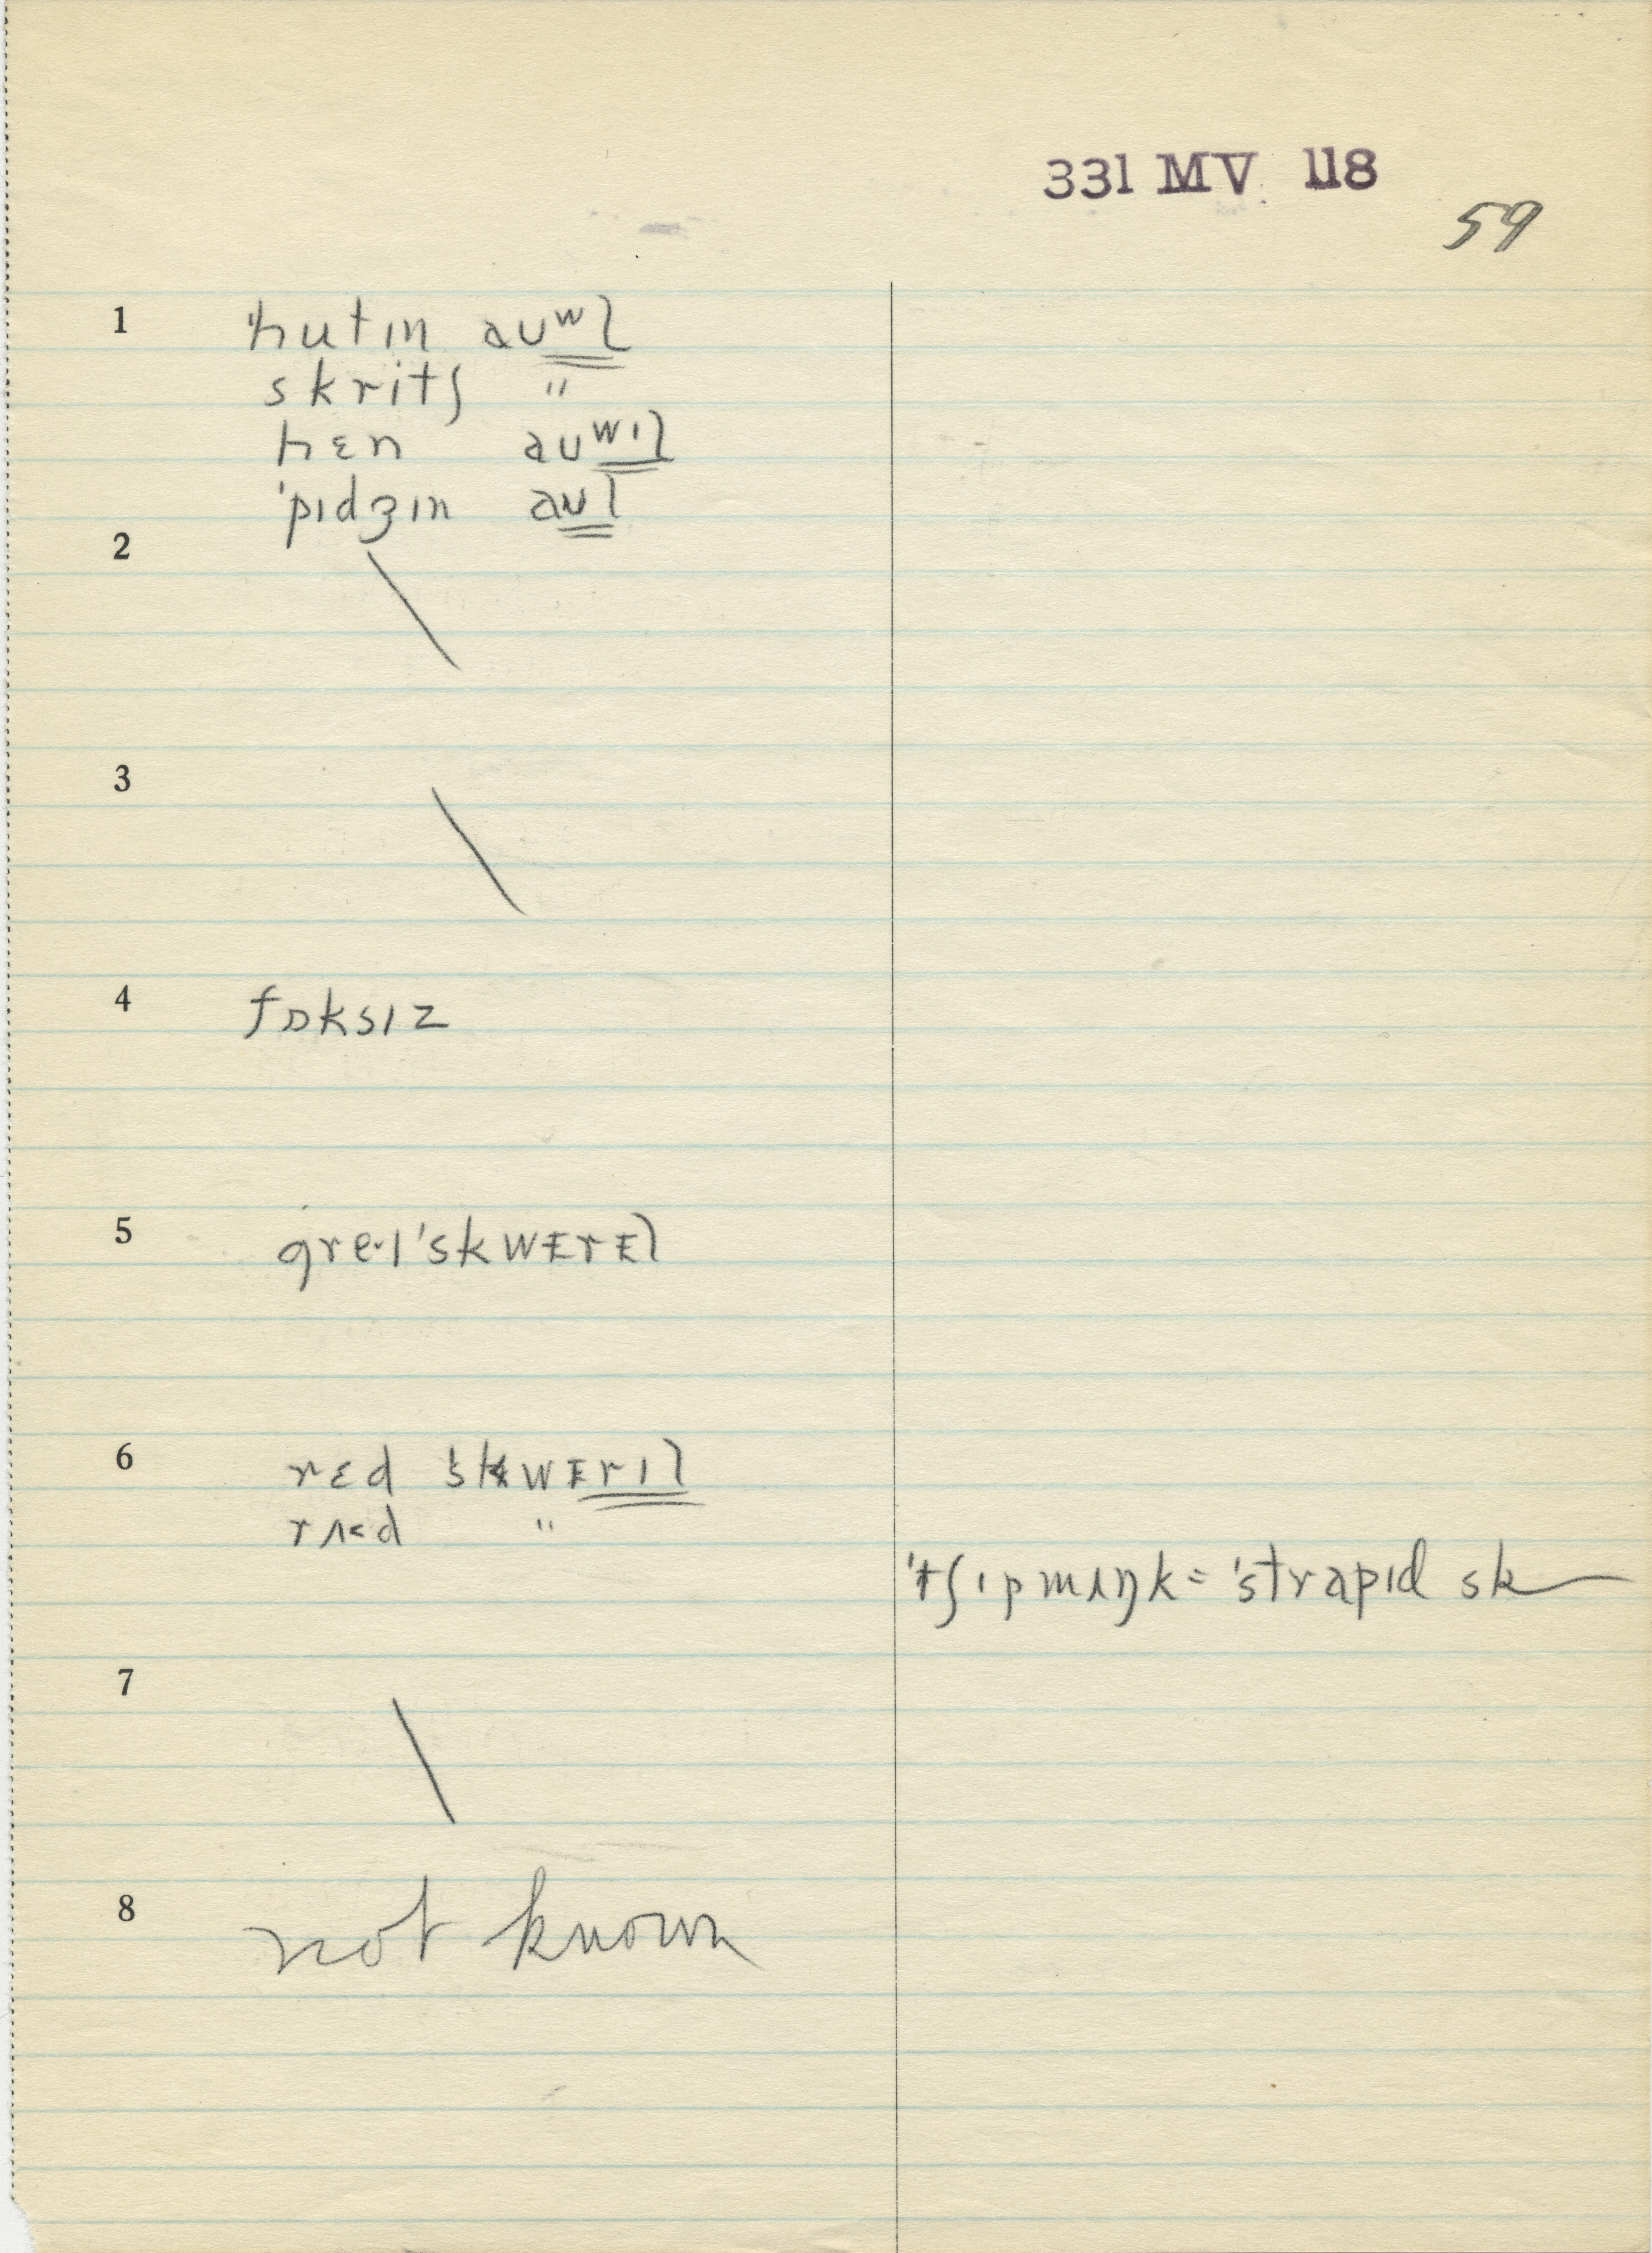 331 MV 118
59
1 'hutɪn aʊʷl
skritʃ "
hɛn aʊʷᶦl
'pɪdʒɪn aʊl
2
3
4 fɒksɪz
5 gre·ɪ'skwErEl
6 rɛd 'skwErɪl
rʌ<d "
'tʃɪpmʌŋk = 'strapɪd sk—
7
8 not known